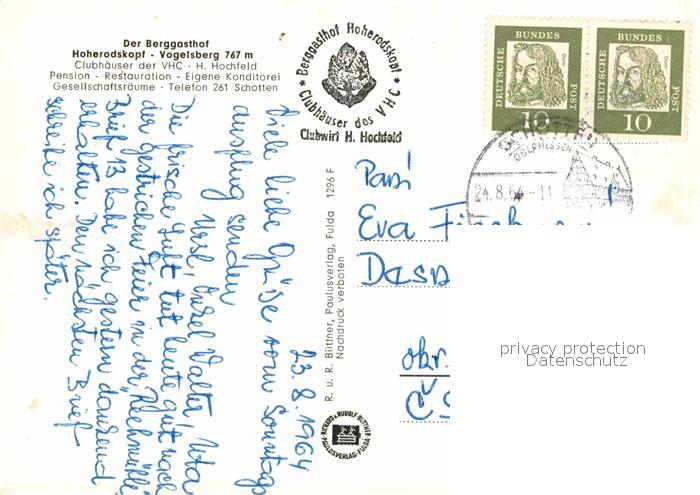 Der Berggasthof
Hoherodskopf - Vogelsberg 767 m
Clubhäuser der VHC · H. Hochfeld
Pension - Restauration - Eigene Konditorei
Gesellschaftsräume · Telefon 261 Schotten
* Berggasthof Hoherodskopf *
Clubhäuser des VHC
Clubwirt H. Hochfeld
DEUTSCHE BUNDES POST
Dürer
10
DEUTSCHE BUNDES POST
Dürer
10
SCHOTTEN
OBERHESSEN
24.8.64-11
23.8.1964
Viele liebe Grüße vom Sonntags
ausflug senden
Ursel, Onkel Walter, Uta
Die frische Luft tut heute gut nach
der gestrichen Feier in der
Brief 13 habe ich gestern dankend
erhalten. Den nächsten Brief
schreibe ich später.
R. u. R. Büttner, Paulusverlag, Fulda 1296 F
Nachdruck verboten
RICHARD & RUDOLF BÜTTNER
PAULUSVERLAG · FULDA
Paní
Eva
okr.
ČS
privacy protection
Datenschutz